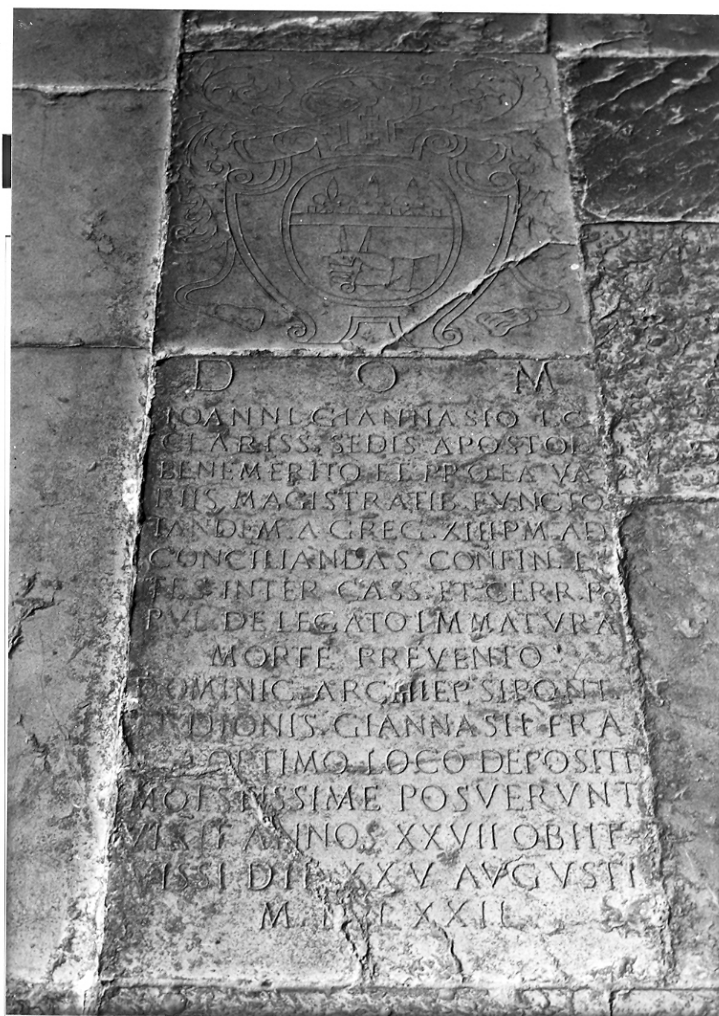 D O M
IOANNI GIANNASIO I C
CLARISS. SEDIS APOSTOL
BENEMERITO ET PRO EA VA
RIIS MAGISTRATIB. FVNCTO
TANDEM A GREG. XIIII P M AD
CONCILIANDAS CONFIN. LI
TES INTER CASS. ET CERR. PO
PVL. DELEGATO IMMATVRA
MORTE PREVENTO
DOMINIC. ARCHIEP. SIPONT.
ET DIONIS. GIANNASII FRA
OPTIMO LOCO DEPOSITI
MOESTISSIME POSVERVNT
VIXIT ANNO XXVII OBIIT
DIE XXV AVGVSTI